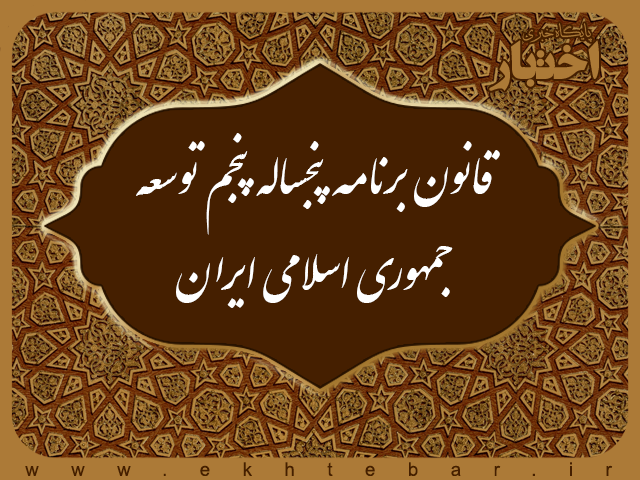 پایگاه خبری
اختبار
قانون برنامه پنجساله پنجم توسعه
جمهوری اسلامی ایران
www.ekhtebar.ir